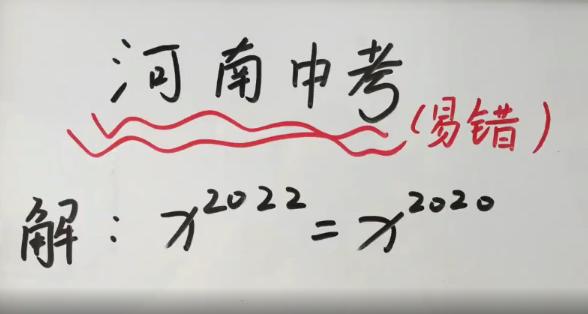 河南中考
(易错)
解：x²⁰²² = x²⁰²⁰